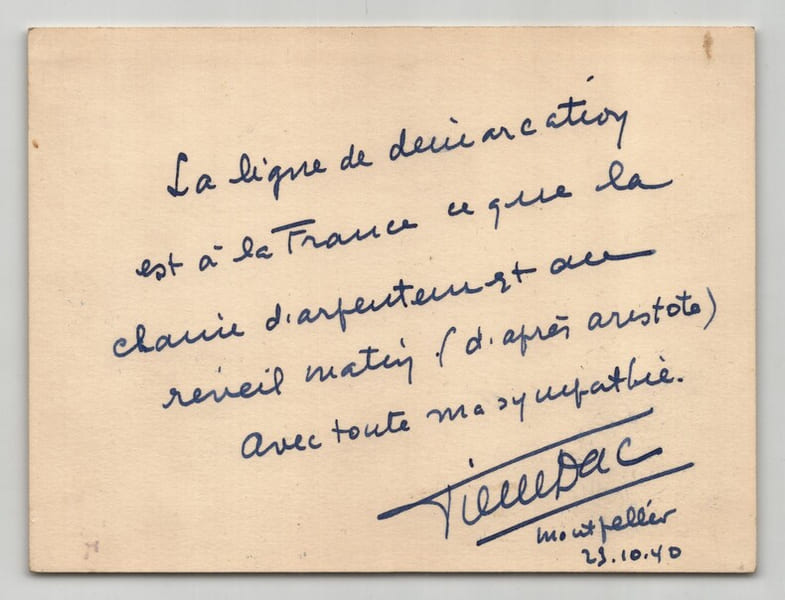 La ligne de demarcation
est à la France ce que la
chaine d'arpenteur est au
réveil matin (d'après aristote)
Avec toute ma sympathie.
Pierre Dac
Montpellier
23.10.40